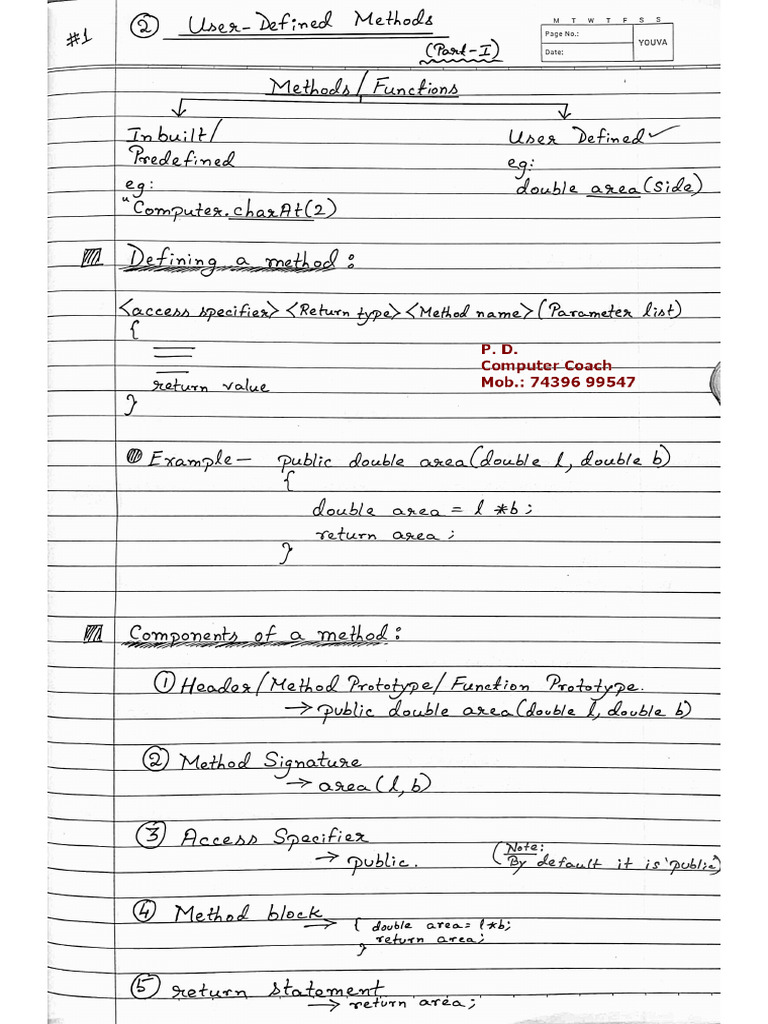 #1
② User-Defined Methods
(Part-I)
M T W T F S S
Page No.:
Date:
YOUVA
Methods/Functions
Inbuilt/
Predefined
eg:
"Computer.charAt(2)
User Defined ✓
eg:
double area(side)
Defining a method:
<access specifier> <Return type> <Method name> (Parameter list)
{
return value
}
P. D.
Computer Coach
Mob.: 74396 99547
Example— public double area(double l, double b)
{
double area = l *b;
return area;
}
Components of a method:
① Header/Method Prototype/Function Prototype.
→ public double area(double l, double b)
② Method Signature
→ area(l, b)
③ Access Specifier
→ public.
(Note:
By default it is 'public)
④ Method block
→ { double area= l*b;
return area;
}
⑤ return statement
→ return area;